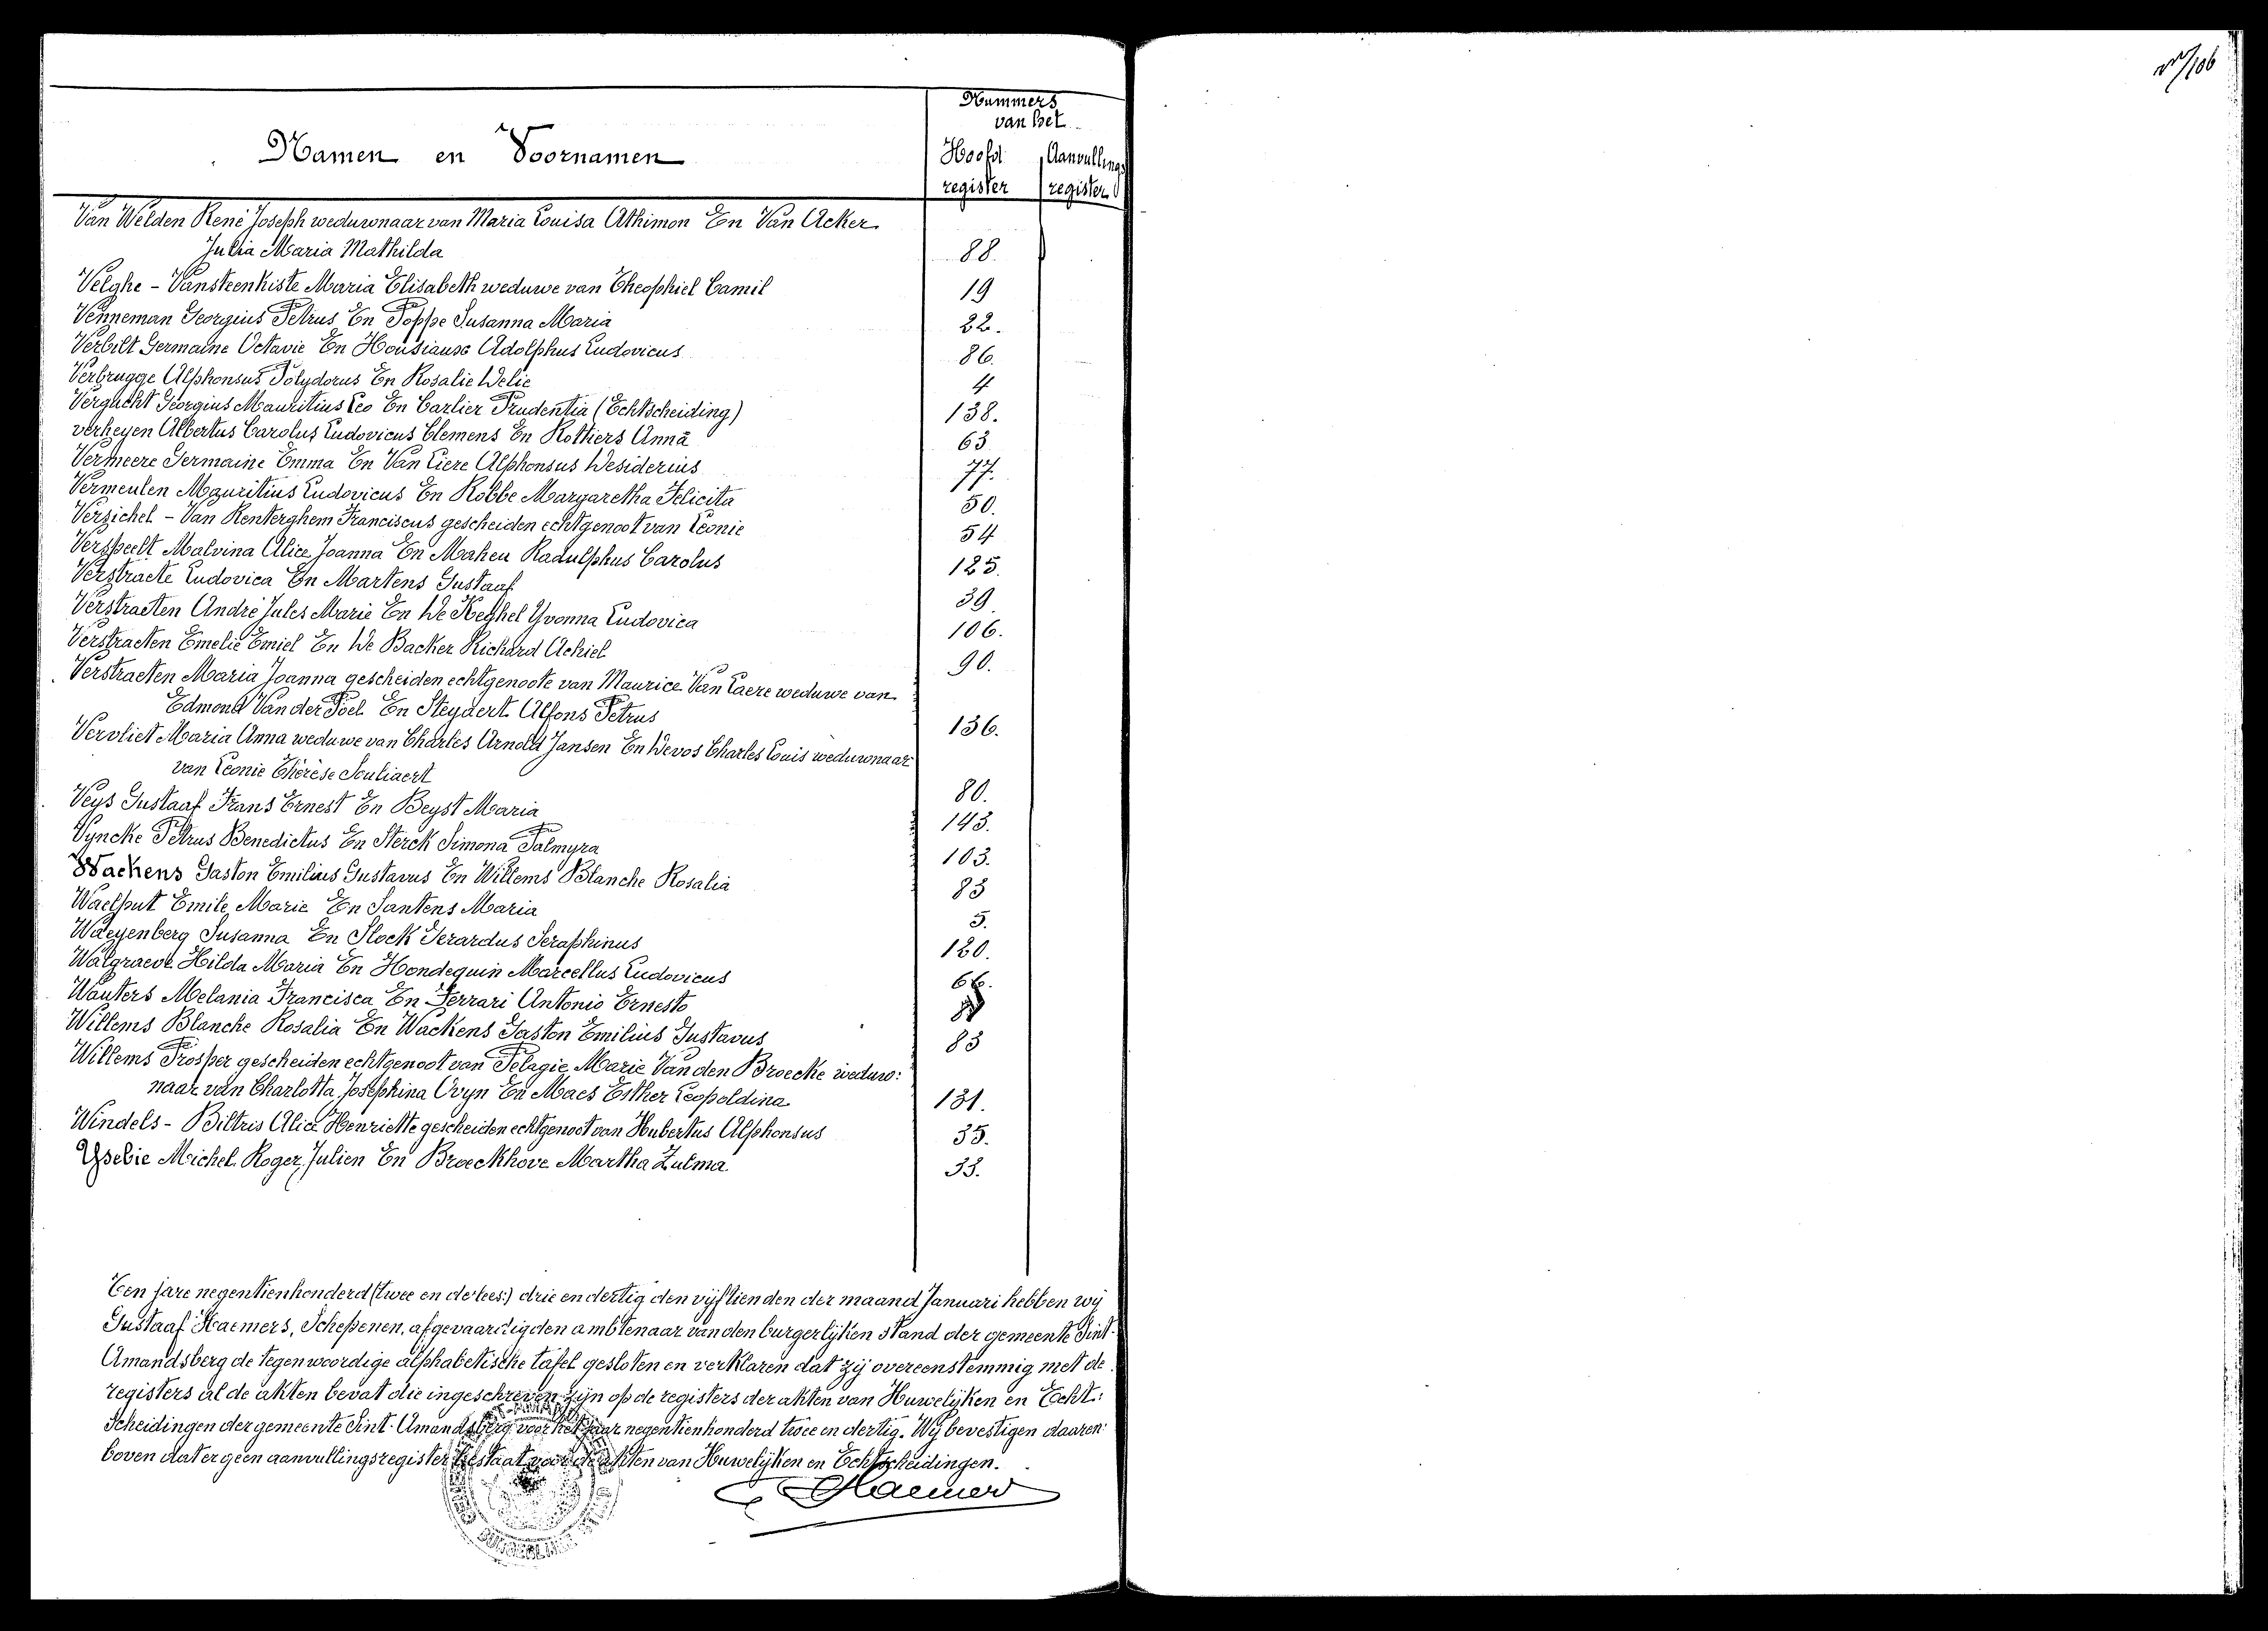 Nummers
van het
Namen en Voornamen
Hoofd register
Aanvullings register
Van Welden René Joseph weduwnaar van Maria Louisa Athimon En Van Acker
Julia Maria Mathilda 88.
Velghe - Vansteenkiste Maria Elisabeth weduwe van Theophiel Camil 19
Venneman Georgius Petrus En Poppe Susanna Maria 22.
Verbilt Germaine Octavie En Housiaux Adolphus Ludovicus 86.
Verbrugge Alphonsus Polydorus En Rosalie Delie 4
Vergucht Georgius Mauritius Leo En Carlier Prudentia (Echtscheiding) 138.
verheyen Albertus Carolus Ludovicus Clemens En Rottiers Anna 63
Vermeere Germaine Emma En Van Liere Alphonsus Desiderius 77.
Vermeulen Mauritius Ludovicus En Robbe Margaretha Felicita 50.
Versichel - Van Renterghem Franciscus gescheiden echtgenoot van Leonie 54
Verspeelt Malvina Alice Joanna En Maheu Radulphus Carolus 125.
Verstraete Ludovica En Martens Gustaaf 39
Verstraeten André Jules Marie En De Keghel Yvonna Ludovica 106.
Verstraeten Emelie Emiel En De Backer Richard Achiel 90.
Verstraeten Maria Joanna gescheiden echtgenoote van Maurice Van Laere weduwe van
Edmond Van der Poel En Steyaert Alfons Petrus 136.
Vervliet Maria Anna weduwe van Charles Arnold Jansen En Devos Charles Louis weduwnaar
van Leonie Thérèse Souliaert 80.
Veys Gustaaf Frans Ernest En Beyst Maria 143.
Vyncke Petrus Benedictus En Sterck Simona Palmyra 103.
Wackens Gaston Emilius Gustavus En Willems Blanche Rosalia 83
Waelput Emile Marie En Santens Maria 5.
Waeyenberg Susanna En Slock Gerardus Seraphinus 120.
Walgraeve Hilda Maria En Hondequin Marcellus Ludovicus 66.
Wauters Melania Francisca En Ferrari Antonio Ernesto
Willems Blanche Rosalia En Wackens Gaston Emilius Gustavus 83
Willems Prosper gescheiden echtgenoot van Pelagie Marie Van den Broecke weduw:
naar van Charlotta Josephina Ovyn En Maes Esther Leopoldina 131.
Windels - Biltris Alice Henriette gescheiden echtgenoot van Hubertus Alphonsus 35.
Yselie Michel Roger Julien En Broeckhove Martha Zulma 33.
Ten jare negentienhonderd (twee en de lees:) drie en dertig den vijftienden der maand Januari hebben wij
Gustaaf Haemers, Schepenen, afgevaardigden ambtenaar van den burgerlijken stand der gemeente Sint-
Amandsberg de tegenwoordige alphabetische tafel gesloten en verklaren dat zij overeenstemmig met de
registers al de akten bevat die ingeschreven zijn op de registers der akten van Huwelijken en Echt:
scheidingen der gemeente Sint-Amandsberg voor het jaar negentienhonderd twee en dertig. Wij bevestigen daaren
boven dat er geen aanvullingsregister bestaat voor de akten van Huwelijken en Echtscheidingen.
G Haemers